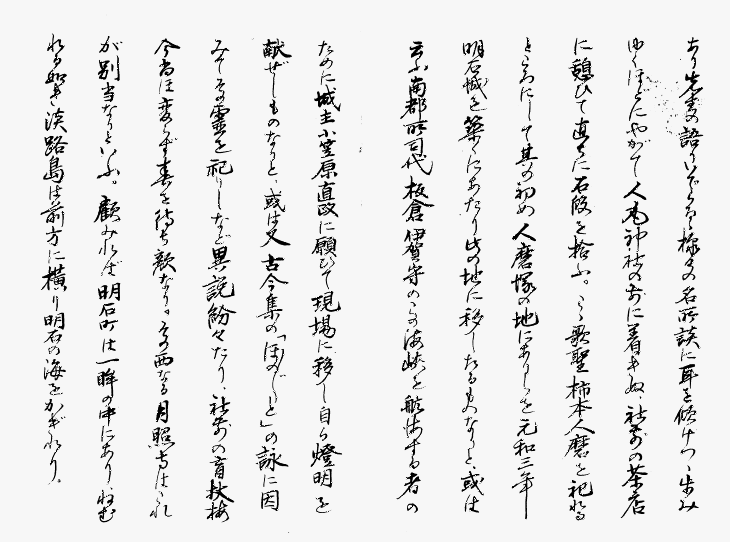 あり先生の語りいでらるゝ様々の名所談に耳を傾けつゝ歩み
ゆくほどにやがて人丸神社の前に着きぬ、社前の茶店
に憩ひて直ちに石段を拾ふ。こゝ歌聖柿本人麿を祀れる
ところにして其の初め人麿塚の地にありしを元和三年
明石城を築くにあたり此の地に移したるものなりと、或は
云ふ南都所司代板倉伊賀守のこの海峡を航海する者の
ために城主小笠原直政に願ひて現場に移し自ら燈明を
献ぜしものなりと、或は又古今集の「ほのぼのと」の詠に因
みてその靈を祀りしなど異説紛々たり、社前の盲杖櫻
今尚ほ変らず春を待ち顔なり。その西なる月照寺はこれ
が別当なりといふ。顧みれば明石町は一眸の中にあり
れる如き淡路島は前方に横り明石の海をかぎれり。